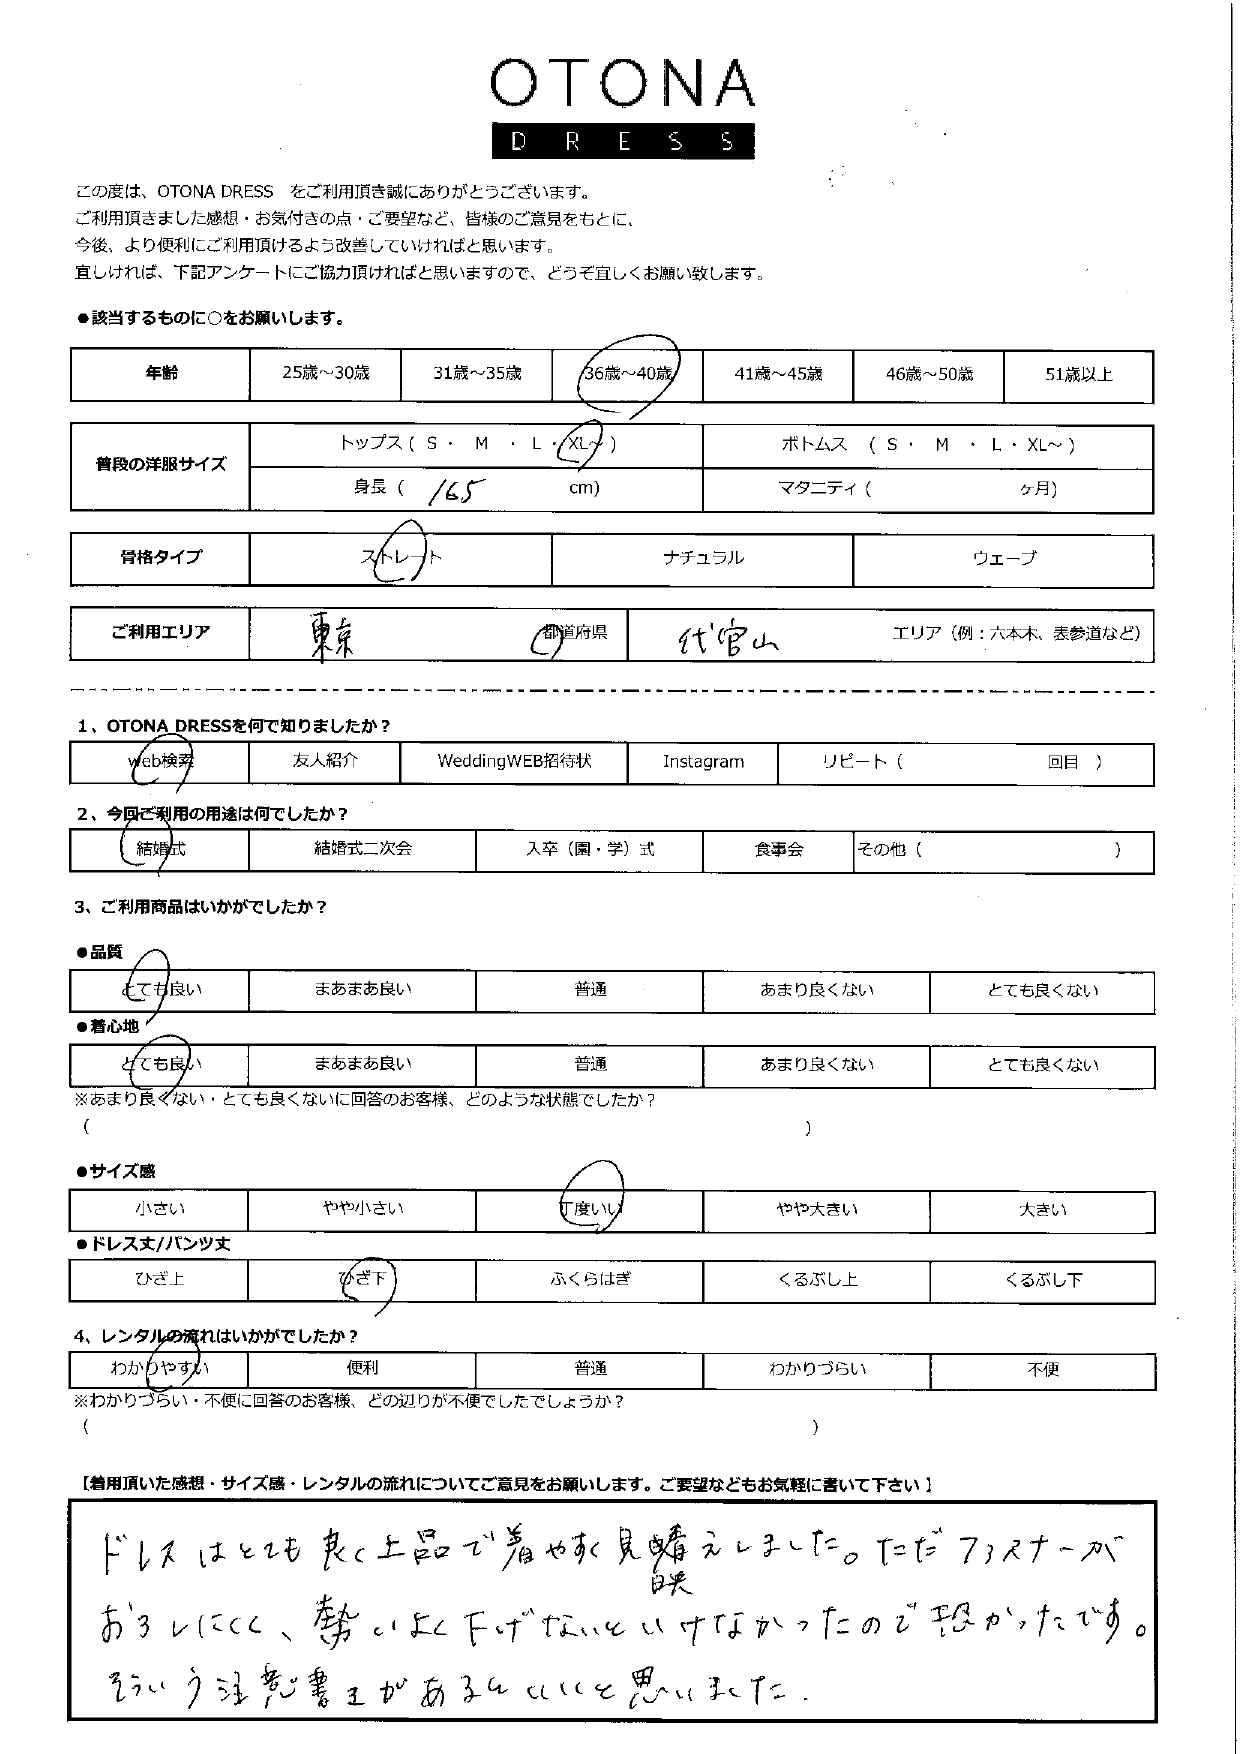 OTONA
DRESS
この度は、OTONA DRESS　をご利用頂き誠にありがとうございます。
ご利用頂きました感想・お気付きの点・ご要望など、皆様のご意見をもとに、
今後、より便利にご利用頂けるよう改善していければと思います。
宜しければ、下記アンケートにご協力頂ければと思いますので、どうぞ宜しくお願い致します。
●該当するものに○をお願いします。
年齢 25歳～30歳 31歳～35歳 36歳～40歳 41歳～45歳 46歳～50歳 51歳以上
普段の洋服サイズ トップス ( S ・ M ・ L ・ XL～ ) ボトムス ( S ・ M ・ L ・ XL～ )
身長 ( 165 cm) マタニティ ( ヶ月)
骨格タイプ ストレート ナチュラル ウェーブ
ご利用エリア 東京 都道府県 代官山 エリア（例：六本木、表参道など）
1、OTONA DRESSを何で知りましたか？
web検索 友人紹介 WeddingWEB招待状 Instagram リピート（ 回目 ）
2、今回ご利用の用途は何でしたか？
結婚式 結婚式二次会 入卒（園・学）式 食事会 その他（ ）
3、ご利用商品はいかがでしたか？
●品質
とても良い まあまあ良い 普通 あまり良くない とても良くない
●着心地
とても良い まあまあ良い 普通 あまり良くない とても良くない
※あまり良くない・とても良くないに回答のお客様、どのような状態でしたか？
( )
●サイズ感
小さい やや小さい 丁度いい やや大きい 大きい
●ドレス丈/パンツ丈
ひざ上 ひざ下 ふくらはぎ くるぶし上 くるぶし下
4、レンタルの流れはいかがでしたか？
わかりやすい 便利 普通 わかりづらい 不便
※わかりづらい・不便に回答のお客様、どの辺りが不便でしたでしょうか？
( )
【着用頂いた感想・サイズ感・レンタルの流れについてご意見をお願いします。ご要望などもお気軽に書いて下さい】
ドレスはとても良く上品で着やすく見映えしました。ただファスナーが
おろしにくく、勢いよく下げないといけなかったので恐かったです。
そういう注意書きがあるといいと思いました.